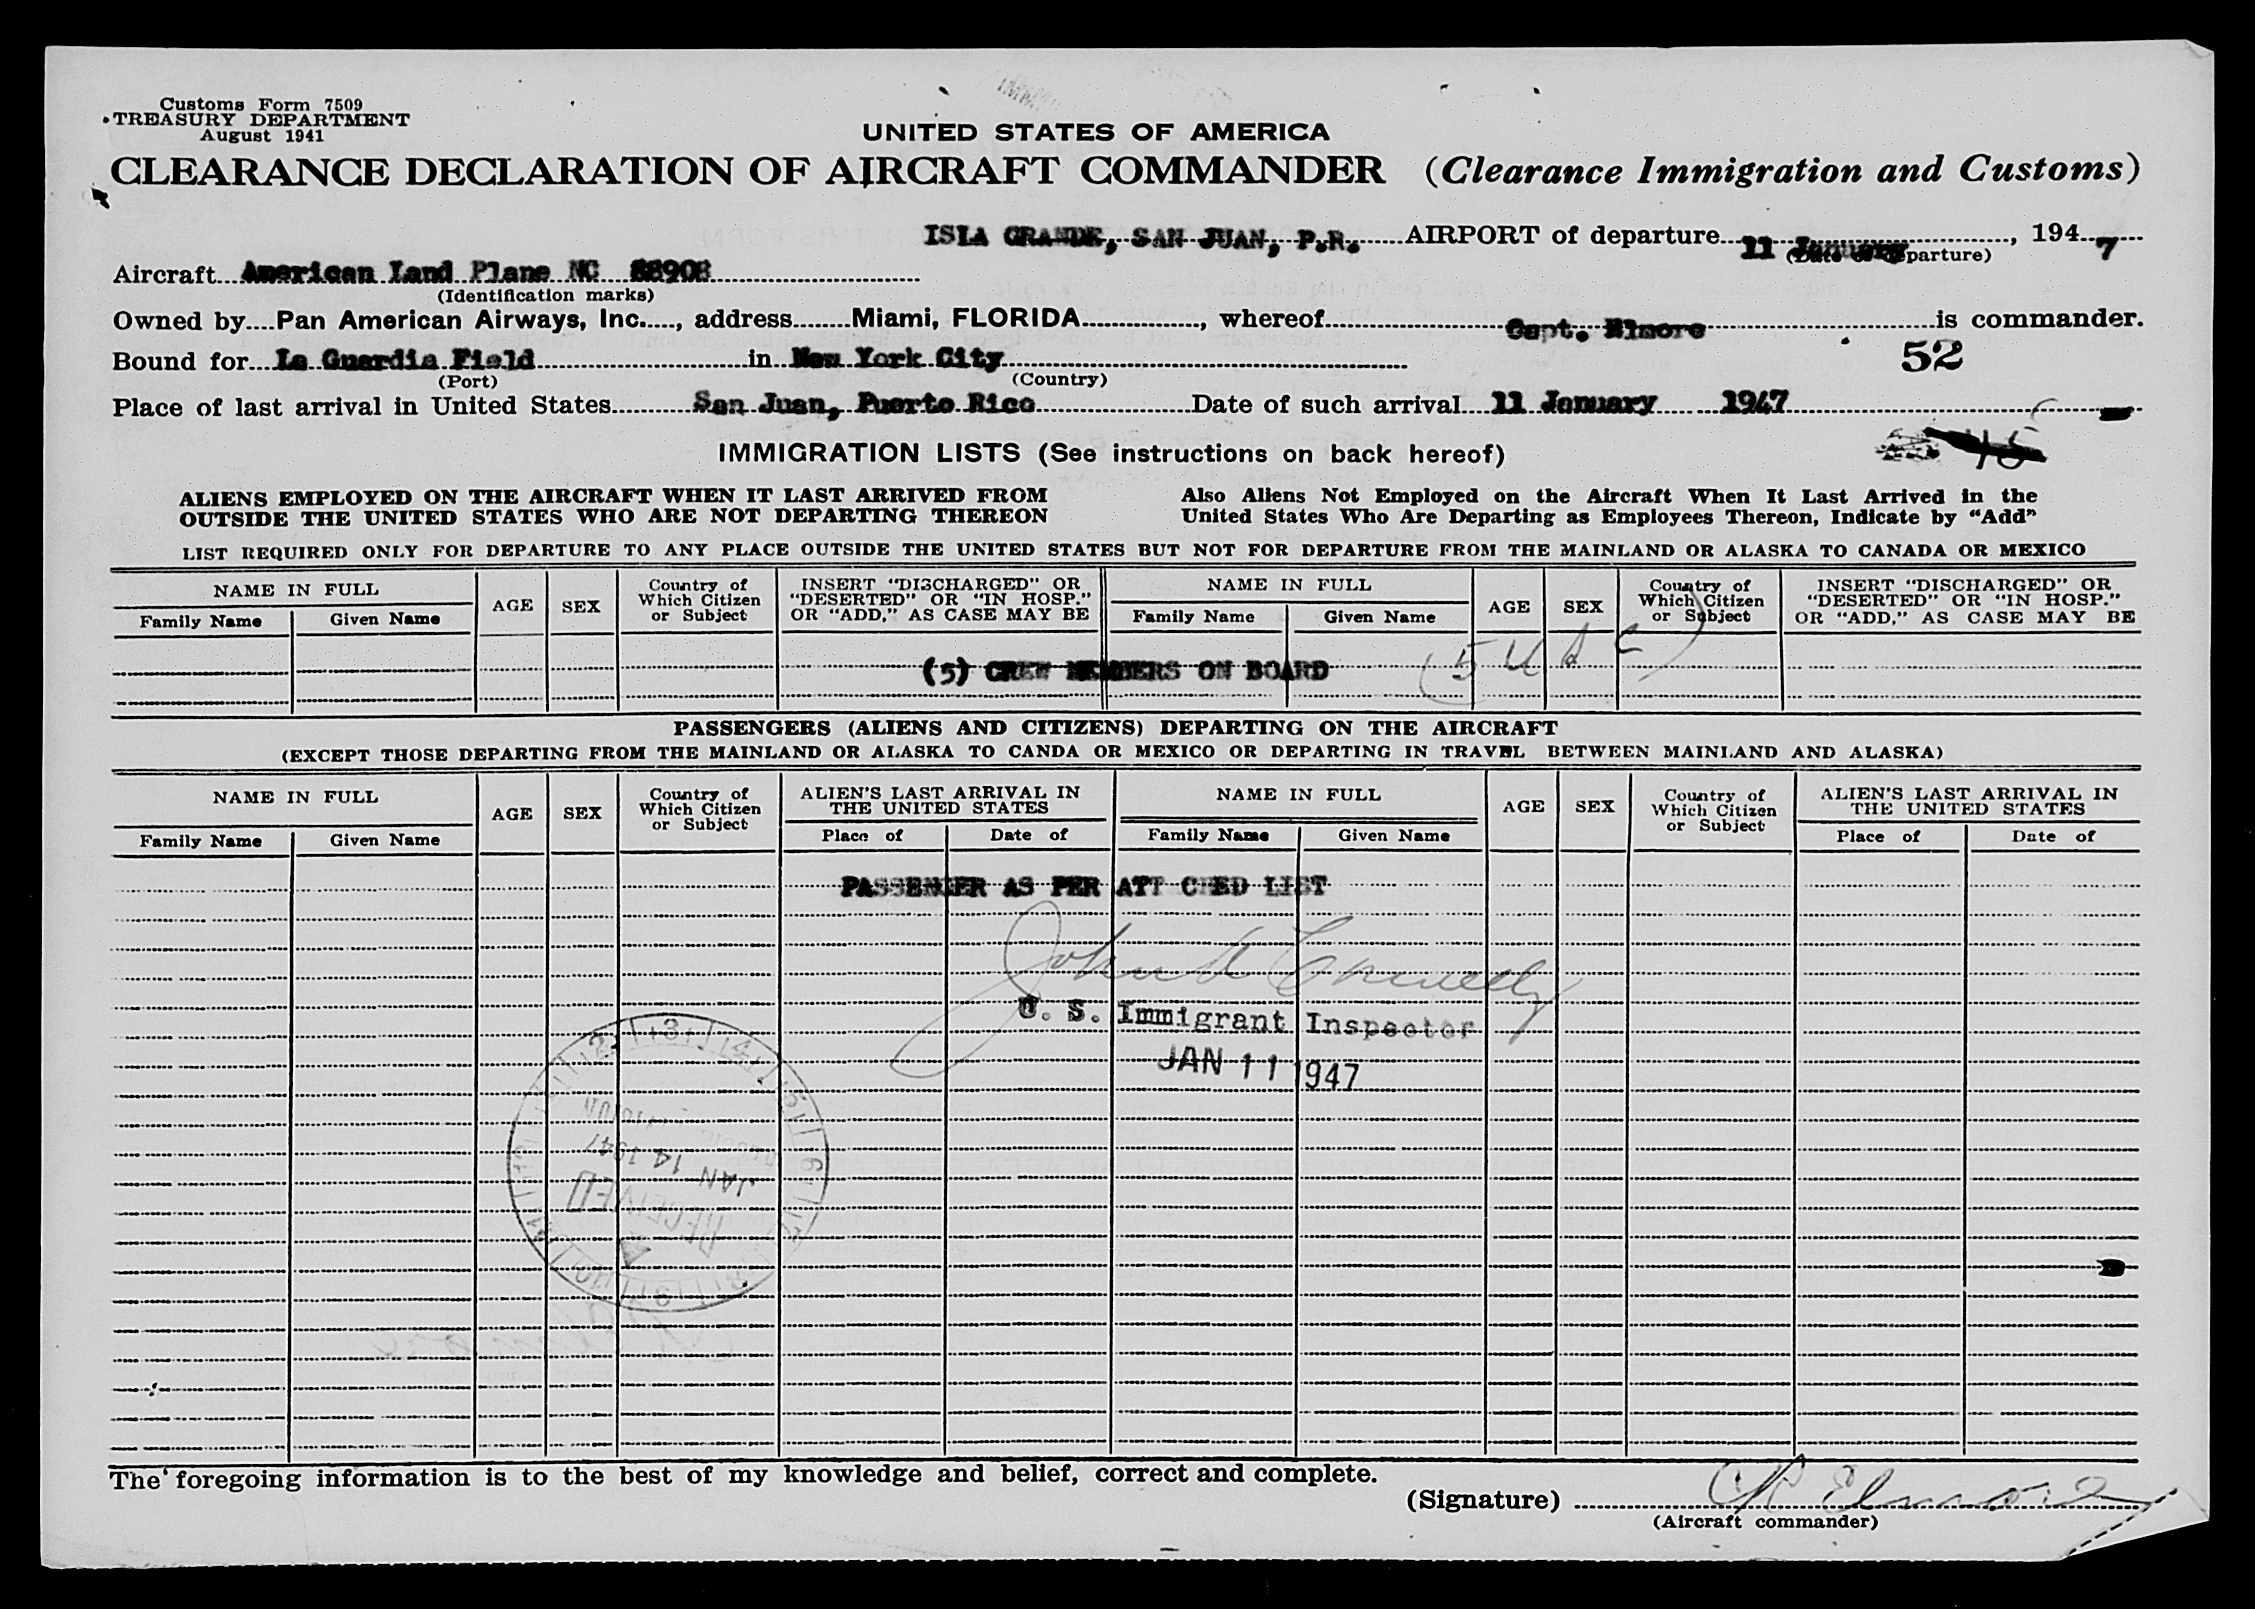 Customs Form 7509
TREASURY DEPARTMENT
August 1941
UNITED STATES OF AMERICA
CLEARANCE DECLARATION OF AIRCRAFT COMMANDER (Clearance Immigration and Customs)
ISLA GRANDE, SAN JUAN, P.R. AIRPORT of departure 11 January, 1947
(Date of departure)
Aircraft American Land Plane NC 88908
(Identification marks)
Owned by Pan American Airways, Inc., address Miami, FLORIDA, whereof Capt. Elmore is commander.
Bound for La Guardia Field in New York City 52
(Port) (Country)
Place of last arrival in United States San Juan, Puerto Rico Date of such arrival 11 January 1947
IMMIGRATION LISTS (See instructions on back hereof)
ALIENS EMPLOYED ON THE AIRCRAFT WHEN IT LAST ARRIVED FROM OUTSIDE THE UNITED STATES WHO ARE NOT DEPARTING THEREON
Also Aliens Not Employed on the Aircraft When It Last Arrived in the United States Who Are Departing as Employees Thereon, Indicate by "Add"
LIST REQUIRED ONLY FOR DEPARTURE TO ANY PLACE OUTSIDE THE UNITED STATES BUT NOT FOR DEPARTURE FROM THE MAINLAND OR ALASKA TO CANADA OR MEXICO
NAME IN FULL AGE SEX Country of Which Citizen or Subject INSERT "DISCHARGED" OR "DESERTED" OR "IN HOSP." OR "ADD," AS CASE MAY BE NAME IN FULL AGE SEX Country of Which Citizen or Subject INSERT "DISCHARGED" OR "DESERTED" OR "IN HOSP." OR "ADD," AS CASE MAY BE
Family Name Given Name Family Name Given Name
(5) CREW MEMBERS ON BOARD (5 U S C)
PASSENGERS (ALIENS AND CITIZENS) DEPARTING ON THE AIRCRAFT
(EXCEPT THOSE DEPARTING FROM THE MAINLAND OR ALASKA TO CANDA OR MEXICO OR DEPARTING IN TRAVEL BETWEEN MAINLAND AND ALASKA)
NAME IN FULL AGE SEX Country of Which Citizen or Subject ALIEN'S LAST ARRIVAL IN THE UNITED STATES NAME IN FULL AGE SEX Country of Which Citizen or Subject ALIEN'S LAST ARRIVAL IN THE UNITED STATES
Family Name Given Name Place of Date of Family Name Given Name Place of Date of
PASSENGER AS PER ATT CHED LIST
John A Connelly
U. S. Immigrant Inspector
JAN 11 1947
JAN 14 1947
RECEIVED
The foregoing information is to the best of my knowledge and belief, correct and complete.
(Signature) Elmore
(Aircraft commander)